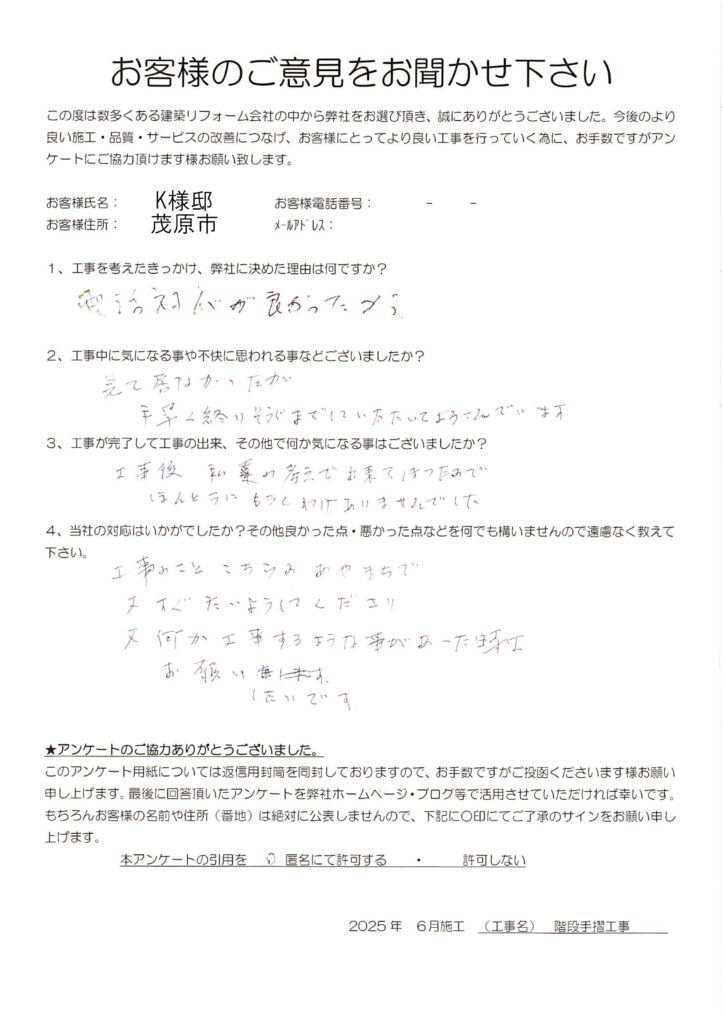 お客様のご意見をお聞かせ下さい
この度は数多くある建築リフォーム会社の中から弊社をお選び頂き、誠にありがとうございました。今後のより
良い施工・品質・サービスの改善につなげ、お客様にとってより良い工事を行っていく為に、お手数ですがアン
ケートにご協力頂けます様お願い致します。
お客様氏名： K様邸 お客様電話番号： - -
お客様住所： 茂原市 ﾒｰﾙｱﾄﾞﾚｽ：
1、工事を考えたきっかけ、弊社に決めた理由は何ですか？
電話対応が良かったから
2、工事中に気になる事や不快に思われる事などございましたか？
見て居なかったが
手早く終りそうじまでしていただいてよろこんでいます
3、工事が完了して工事の出来、その他で何か気になる事はございましたか？
工事後 私の考えで
ほんとうにもうしわけありませんでした
4、当社の対応はいかがでしたか？その他良かった点・悪かった点などを何でも構いませんので遠慮なく教えて
下さい。
工事のこと こちらのあやまちで
又すぐたいようしてくださり
又何か工事するような事があった時は
お願い
したいです
★アンケートのご協力ありがとうございました。
このアンケート用紙については返信用封筒を同封しておりますので、お手数ですがご投函くださいます様お願い
申し上げます。最後に回答頂いたアンケートを弊社ホームページ・ブログ等で活用させていただければ幸いです。
もちろんお客様の名前や住所（番地）は絶対に公表しませんので、下記に〇印にてご了承のサインをお願い申し
上げます。
本アンケートの引用を 匿名にて許可する ・ 許可しない
2025年 6月施工 （工事名） 階段手摺工事